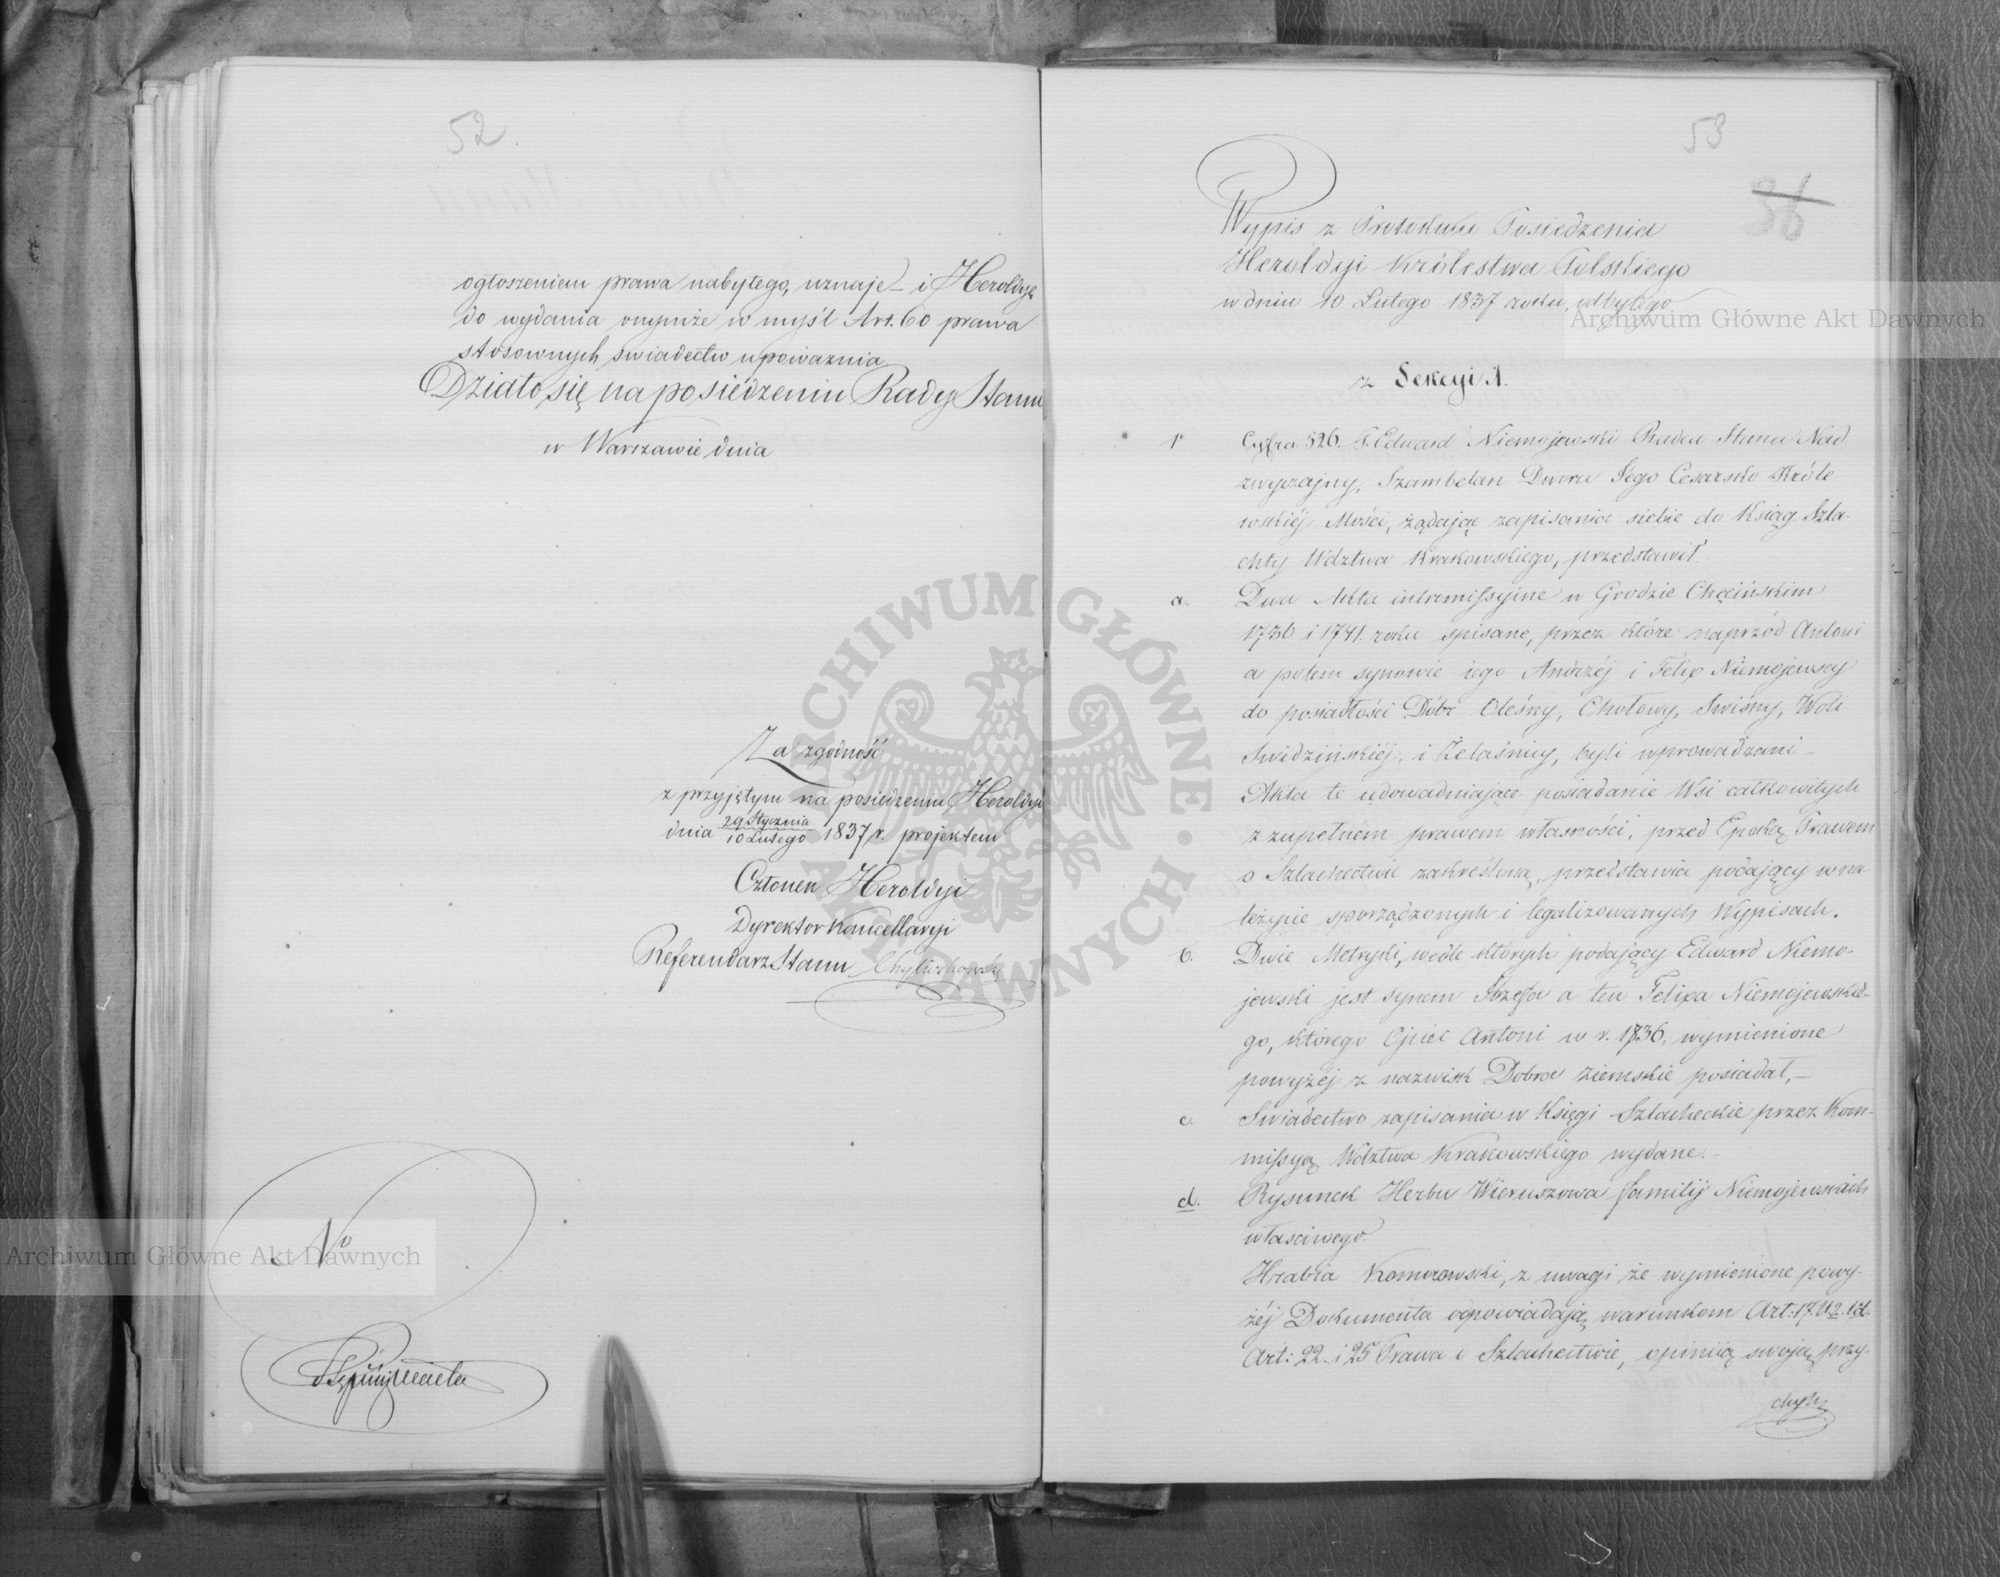 52.
ogłoszeniem prawa nabytego, uznaje i Heroldyę
do wydania onymże w myśl Art. 60 prawa
stosownych świadectw upoważnia
Działo się na posiedzeniu Rady Stanu
w Warszawie dnia
Za zgodność
z przyjętym na posiedzeniu Heroldyi
dnia 29 Stycznia / 10 Lutego 1837 r. projektem
Członek Heroldyi
Dyrektor Kancellaryi
Referendarz Stanu
No
53
36
Wypis z Protokułu Posiedzenia
Heroldyi Królestwa Polskiego
w dniu 10 Lutego 1837 roku odbytego
z Sekcyi 1.
1o Cyfra 526. Edward Niemojewski Radca Stanu Nad
zwyczajny, Szambelan Dworu Jego Cesarsko Króle
wskiéj Mości, żądając zapisania siebie do Ksiąg Szla-
chty Wdztwa Krakowskiego, przedstawił.
a. Dwa Akta intromissyjne w Grodzie Chęcińskim
1736 i 1741. roku spisane, przez które naprzód Antoni
a potem synowie iego Andrzéj i Felix Niemojewscy
do posiadłości Dóbr Oleśny, Chotowy, Swisny, Woli
Swidzińskiéj, i Żelaśnicy, byli wprowadzani –
Akta te udowadniające posiadanie Wsi całkowitych
z zupełném prawem własności, przed Epoką Prawem
o Szlachectwie zakreśloną, przedstawia podający w na
leżycie sporządzonych i legalizowanych Wypisach.
b. Dwie Metryki, wedle których podający Edward Niemo-
jewski jest synem Józefa a ten Felixa Niemojewskie-
go, którego Ojciec Antoni w r. 1736. wymienione
powyżéj z nazwisk Dobra ziemskie posiadał, –
c. Swiadectwo zapisania w Księgi Szlacheckie przez Kom-
missyą Wdztwa Krakowskiego wydane. –
d. Rysunek Herbu Wieruszowa familij Niemojewskich
właściwego.
Hrabia Komorowski, z uwagi że wymienione powy-
żéj Dokumenta odpowiadają warunkom Art: 17. U2. lit d.
Art: 22. i 25 Prawa o Szlachectwie, opiniią swoją przy-
chyla
Archiwum Główne Akt Dawnych
Archiwum Główne Akt Dawnych
ARCHIWUM GŁÓWNE AKT DAWNYCH